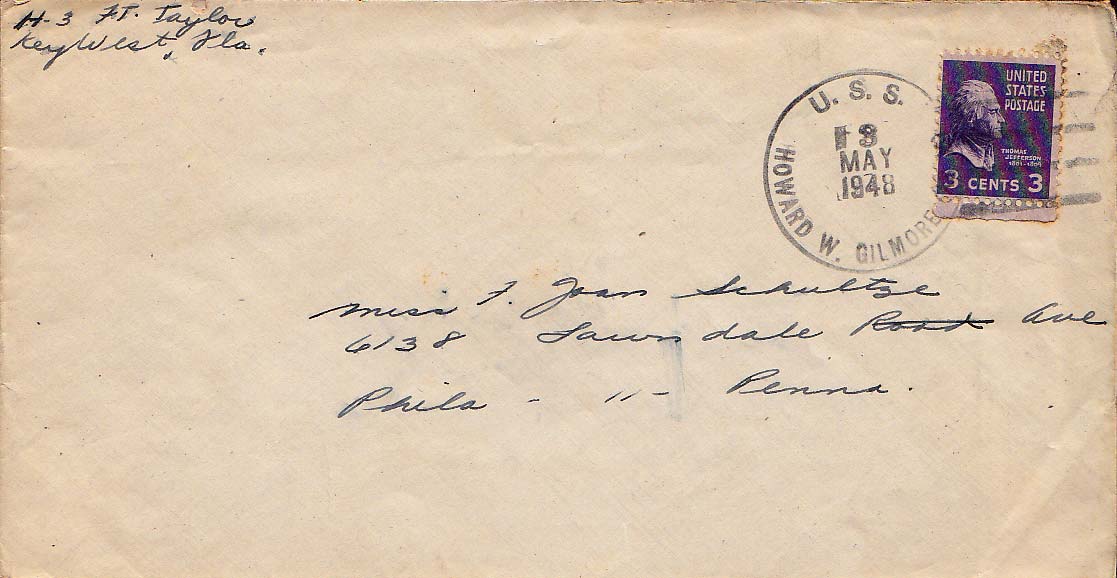 H-3 Ft. Taylor
Key West, Fla.
U. S. S.
3
MAY
1948
HOWARD W. GILMORE
UNITED
STATES
POSTAGE
THOMAS
JEFFERSON
1801-1809
3 CENTS 3
Miss F. Joan Schultze
6138 Lawndale Road Ave
Phila - 11 - Penna.